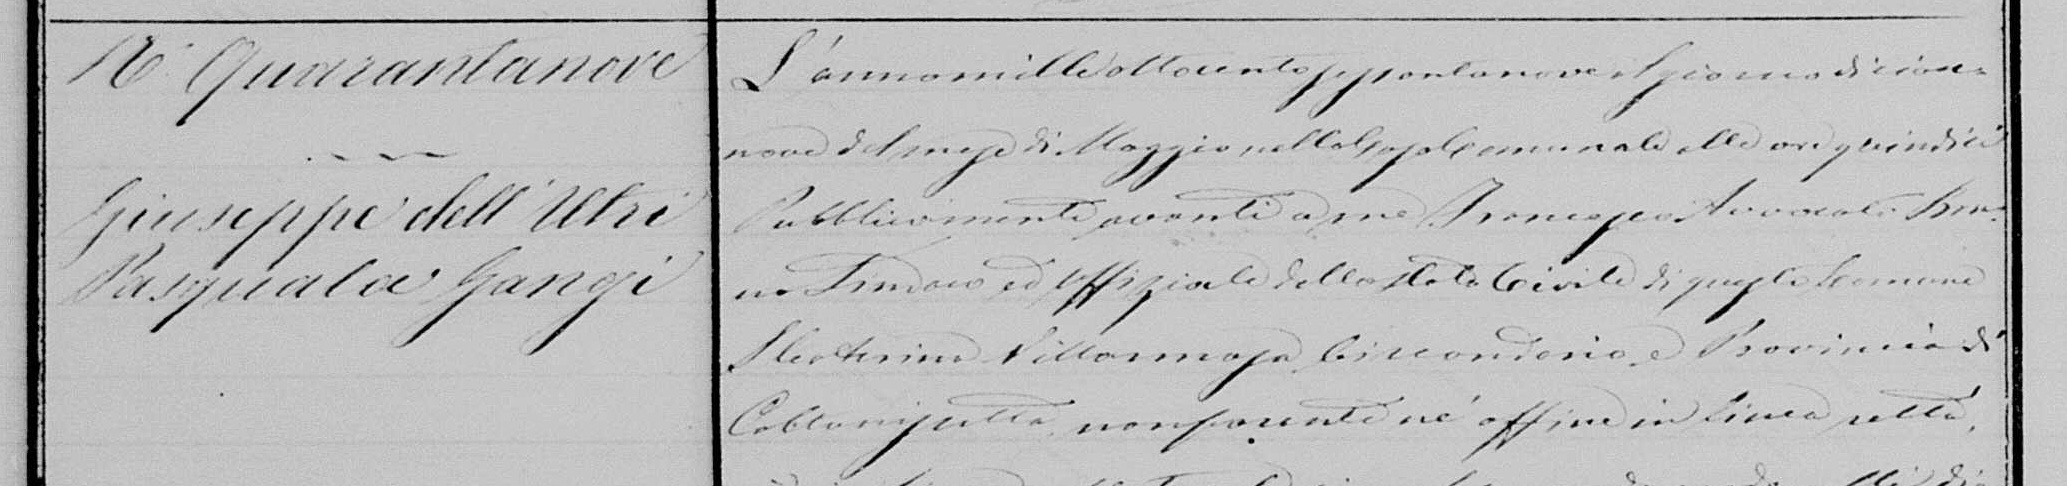 N. Quarantanove
Giuseppe dell'Utri
Pasquala Gangi
L'anno mille ottocento settantanove il giorno dician-
nove del mese di Maggio nella Casa Comunale alle ore quindici
Pubblicamente avanti a me Francesco Avvocato
no Sindaco ed Uffiziale dello stato Civile di questo Comune
S. Caterina Villarmosa Circondario e Provincia di
Caltanissetta, non parente né affine in linea retta,